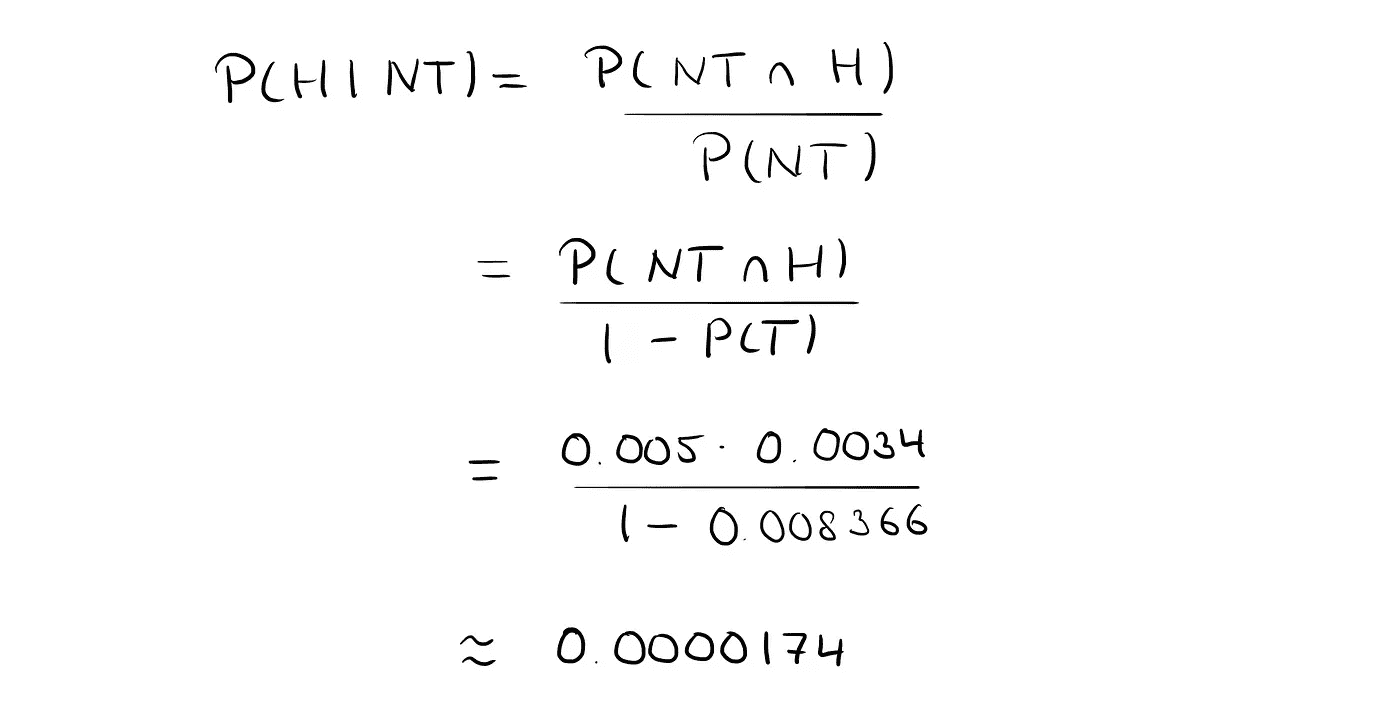 P(H | NT) = P(NT ∩ H)
P(NT)
= P(NT ∩ H)
1 - P(T)
= 0.005 · 0.0034
1 - 0.008366
≈ 0.0000174